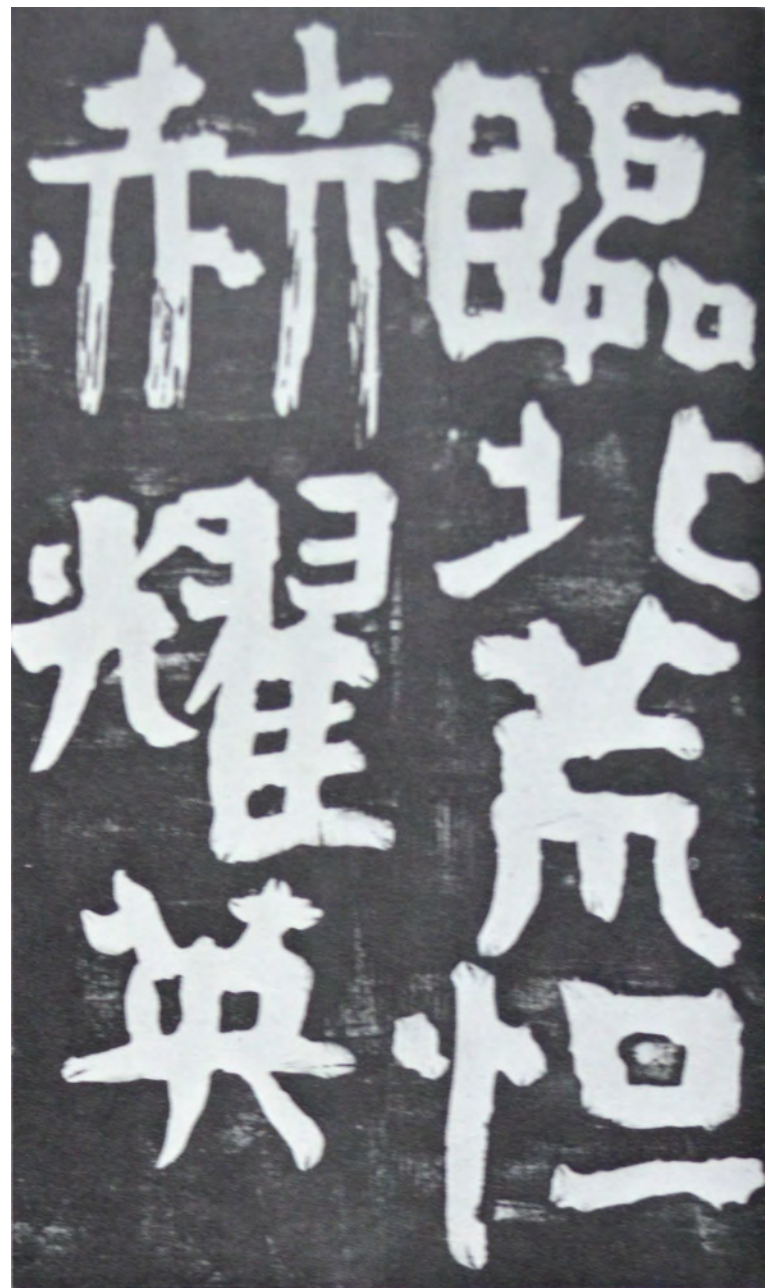 臨北荒恒
赫耀英